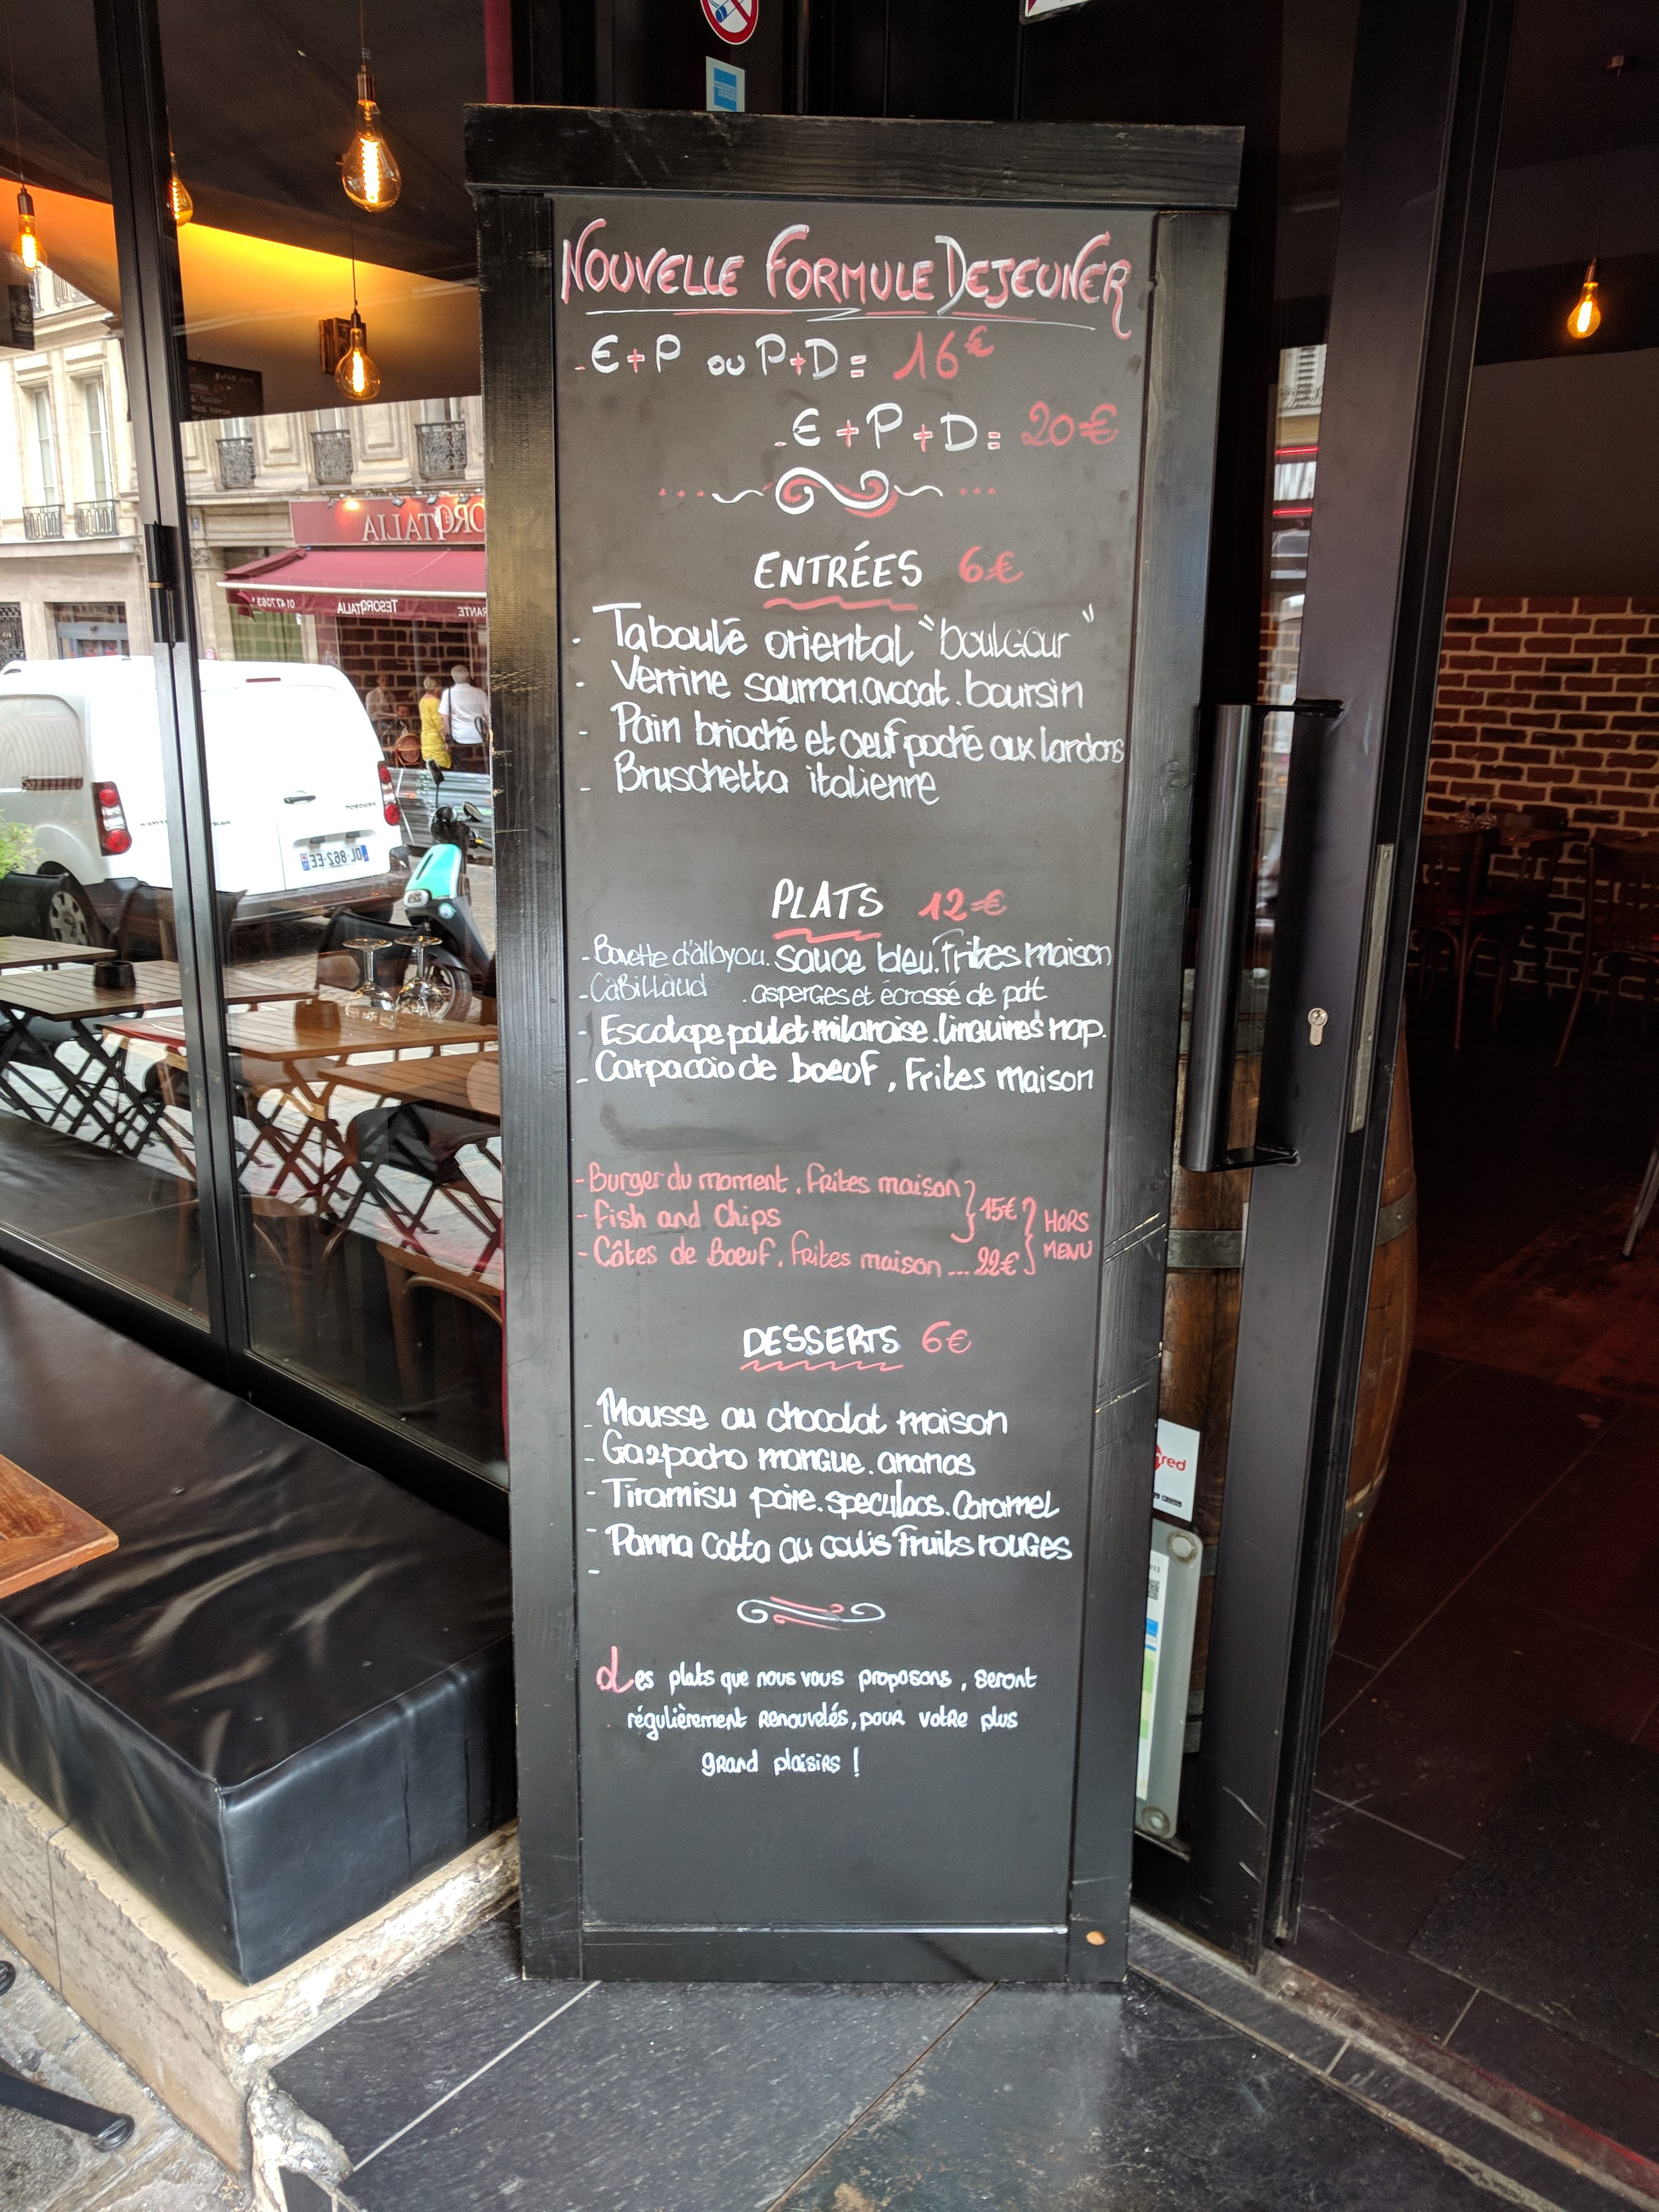 NOUVELLE FORMULE DEJEUNER
- E+P ou P+D = 16€
- E+P+D = 20€
ENTRÉES 6€
- Taboulé oriental "boulgour"
- Verrine saumon.avocat.boursin
- Pain brioché et oeuf poché aux lardons
- Bruschetta italienne
PLATS 12€
- Bavette d'alloyou. sauce bleu. Frites maison
- CaBillaud . asperges et écrassé de pdt
- Escalope poulet milanaise. linguines nap.
- Carpaccio de boeuf, Frites maison
- Burger du moment. frites maison
- fish and Chips } 15€
- Côtes de Boeuf. frites maison ... 22€ } HORS MENU
DESSERTS 6€
- Mousse au chocolat maison
- Gazpacho mangue. ananas
- Tiramisu poire. speculoos. Caramel
- Panna Cotta au coulis Fruits rouges
-
Les plats que nous vous proposons, seront
régulièrement renouvelés, pour votre plus
grand plaisirs !
TESOROTALIA
01 47 063
TESOROTALIA
RANTE
DL-862-EE
PEUGEOT
red